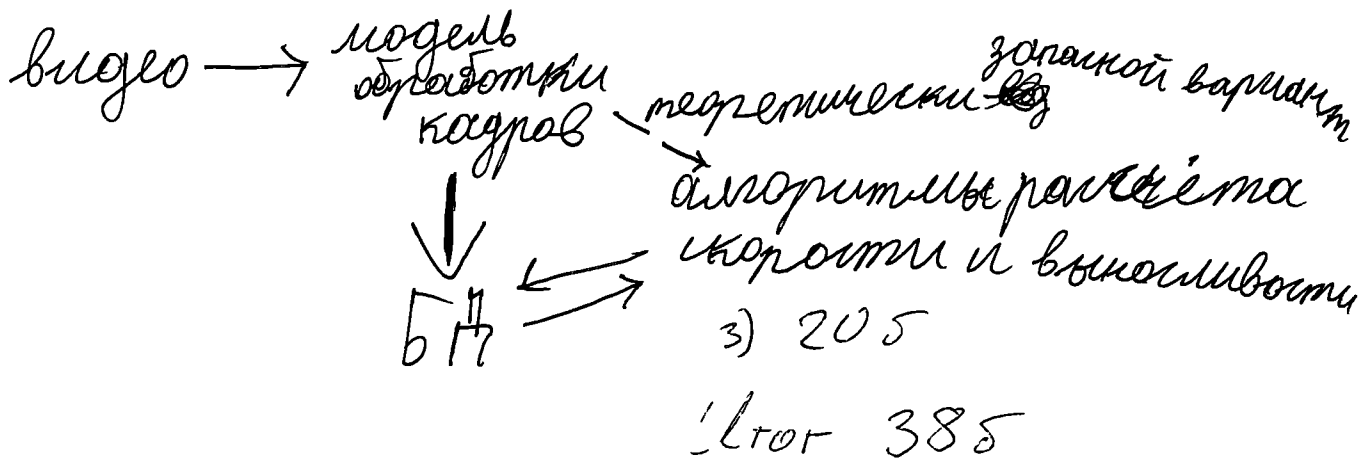 видео
модель
обработки
кадров
теоретически
запасной вариант
алгоритмы расчёта
скорости и выносливости
БД
3) 20 б
Итог 38 б